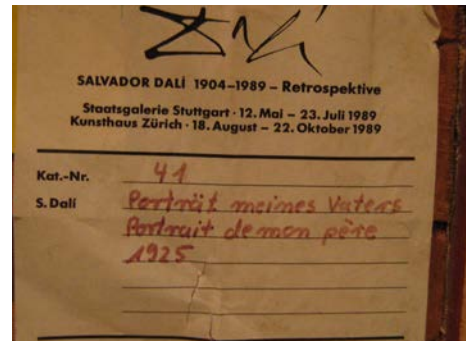 Dalí
SALVADOR DALÍ 1904–1989 – Retrospektive
Staatsgalerie Stuttgart · 12. Mai – 23. Juli 1989
Kunsthaus Zürich · 18. August – 22. Oktober 1989
Kat.-Nr. 41
S. Dalí Porträt meines Vaters
Portrait de mon père
1925